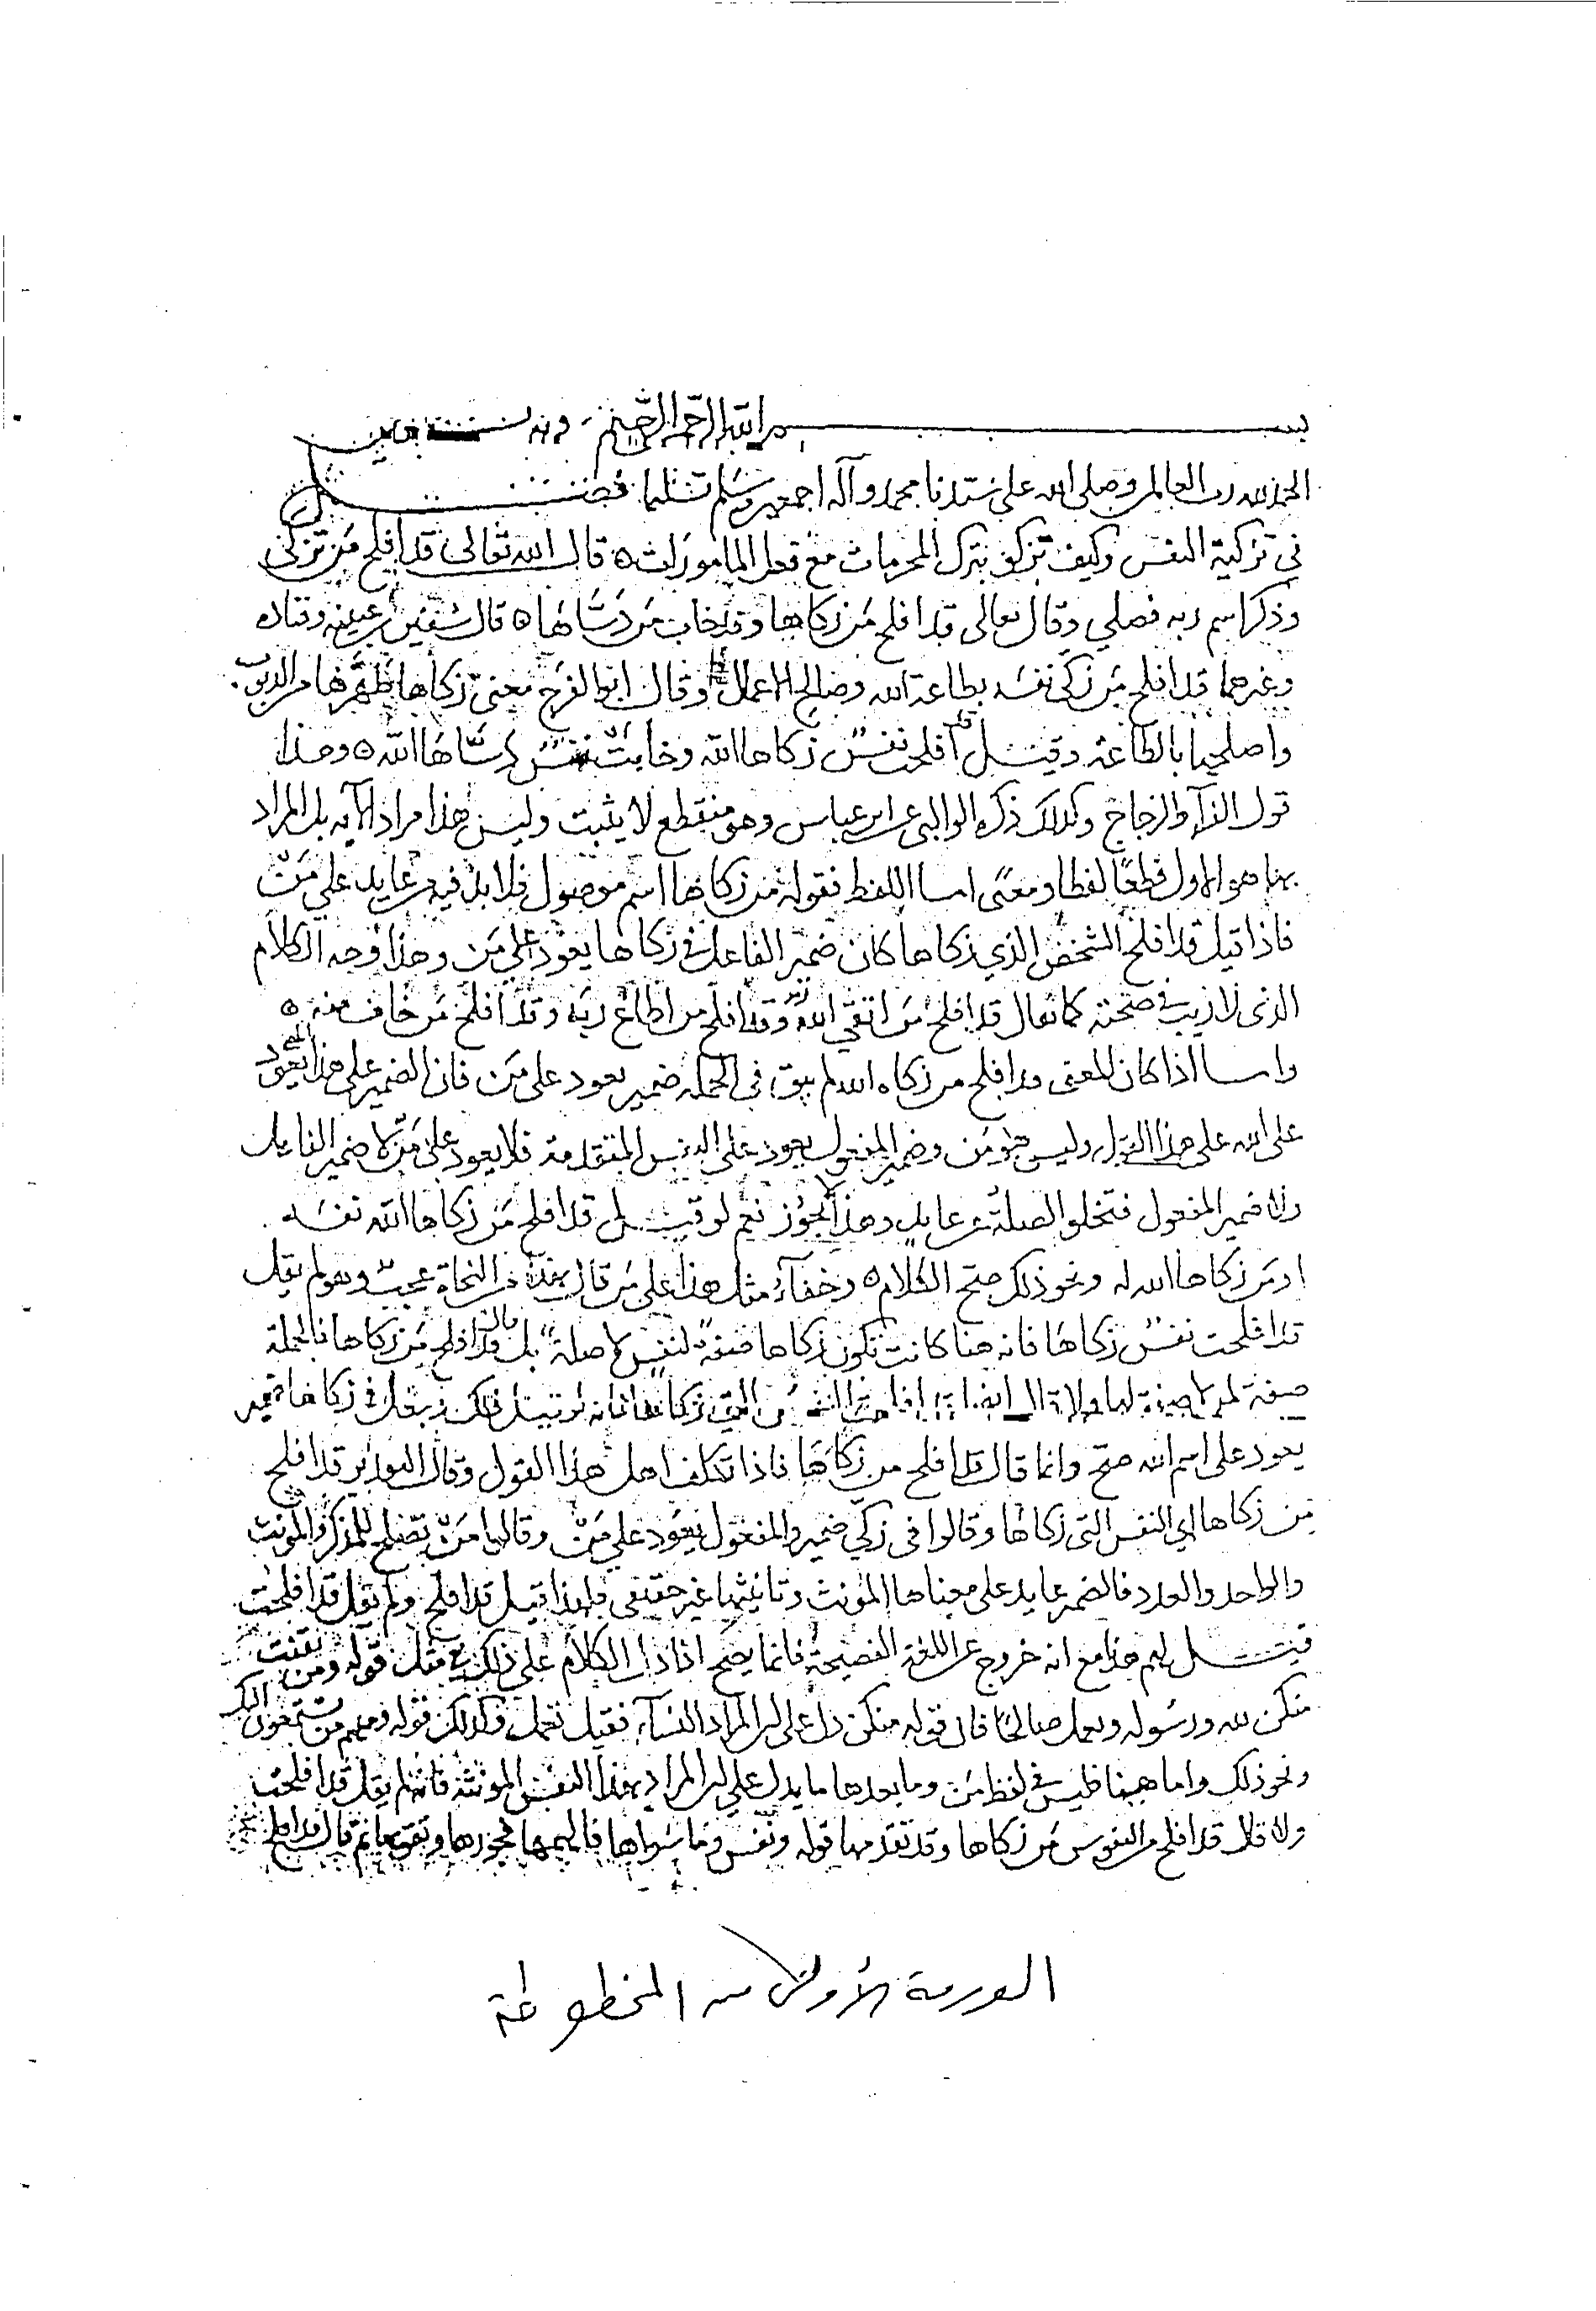 بسم الله الرحمن الرحيم وبه نستعين
الحمد لله رب العالمين وصلى الله على سيدنا محمد وآله اجمعين وسلم تسليما فصل
فى تزكية النفس وكيف تزكو بترك المحرمات مع فعل المامورات ه قال الله تعالى قد افلح من تزكى
وذكر اسم ربه فصلي وقال تعالى قد افلح من زكاها وقد خاب من دساها ه قال سفين بن عيينه وقتاده
وغيرهما قد افلح من زكى نفسه بطاعة الله وصالح الاعمال وقال ابو الفرج معنى زكاها طهرها من الذنوب
واصلحها بالطاعة وقيل قد افلحت نفس زكاها الله وخابت نفس دساها الله ه وهذا
قول الفرآ والزجاج وكذلك ذكره الوالبى عن ابن عباس وهو منقطع لا يثبت وليس هذا مراد الآيه بل المراد
بها هو الاول قطعًا لفظا ومعنى اما اللفظ فقوله من زكاها اسم موصول فلا بد فيه من عايد على من
فاذا قيل قد افلح الشخص الذي زكاها كان ضمير الفاعل فى زكاها يعود على من وهذا وجه الكلام
الذى لا ريب فى صحته كما يقال قد افلح من اتقى الله وقد افلح من اطاع ربه وقد افلح من خاف منه ه
واما اذا كان المعنى قد افلح من زكاه الله لم يبق فى الجمله ضمير يعود على من فان الضمير على هذا يعود
على الله وليس هو من وضمير المفعول يعود على النفس المتقدمة فلا يعود على من لا ضمير الفاعل
ولا ضمير المفعول فتخلو الصلة عن عايد وهذا لا يجوز نعم لو قيل قد افلح من زكاها الله نفسه
او من زكاها الله له ونحو ذلك صح الكلام ه وخفآء مثل هذا على من قال بهذا من النحاة عجب وهو لم يقل
قد افلحت نفس زكاها فانه هنا كانت تكون زكاها صفة لنفس لا صلة بل قال قد افلح من زكاها فالجملة
صفة لمن لا صفة لها ولا قال ايضا قد افلحت النفس التى زكاها فانه لو قيل ذلك وجعل فى زكاها ضمير
يعود على اسم الله صح وانما قال قد افلح من زكاها فاذا تكلف اهل هذا القول وقال التقدير قد افلح
من زكاها اي النفس التى زكاها وقالوا فى زكي ضمير والمفعول يعود على من وقالوا من تصلح للمذكر والمونث
والواحد والعدد فالضمير عايد على معناها المونث وتانيثها غير حقيقى فلهذا قيل قد افلح ولم يقل قد افلحت
قيل لهم هذا مع انه خروج عن اللغة الفصيحة فانما يصح اذا دل الكلام على ذلك فى مثل قوله ومن يقنت
منكن لله ورسوله وتعمل صالحا فان قوله منكن دل على ان المراد النسآء فقيل تعمل وكذلك قوله ومنهم من يستمعون اليك
ونحو ذلك واما ههنا فليس فى لفظ من وما بعدها ما يدل على ان المراد بهذا النفس المونثة فانه لم يقل قد افلحت
ولا قال قد افلح من النفوس من زكاها وقد تقدمها قوله ونفس وما سواها فالهمها فجورها وتقواها ثم قال قد افلح
الورقة الأولى من المخطوطة